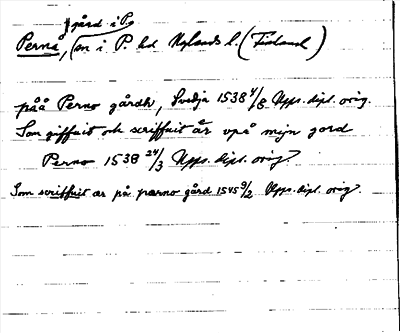 gård i P.
Pernå, (en i P. hd Nylands l. (Finland)
påå Perno gårdh, Svedja 1538 4/8 Upps. dipl. orig.
Som giffuit och scriffuit är vpå mijn gord
Perno 1538 24/3 Upps. dipl. orig.
Som scriffuit ar på pærno gård 1545 9/2 Upps. dipl. orig.